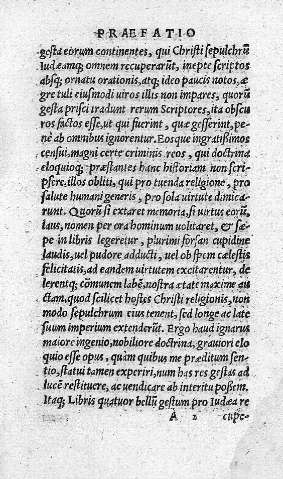 PRÆFATIO
gesta eorum continentes, qui Christi sepulchrũ
Iudæamq; omnem recuperarũt, inepte scriptos
absq; ornatu orationis, atq; ideo paucis notos, æ
gre tuli eiusmodi uiros illis non impares, quorũ
gesta prisci tradunt rerum Scriptores, ita obscu
ros factos esse, ut qui fuerint, quæ gesserint, pe-
nè ab omnibus ignorentur. Eosque ingratissimos
censui, magni certe criminis reos, qui doctrina
eloquioq; præstantes hanc historiam non scri-
psere. illos obliti, qui pro tuenda religione, pro
salute humani generis, pro sola uirtute dimica-
runt. Quorũ si extaret memoria, si uirtus eorũ,
laus, nomen per ora hominum uolitaret, & sæ-
pe in libris legeretur, plurimi forsan cupidine
laudis, uel pudore adducti, uel ob spem cælestis
felicitatis, ad eandem uirtutem excitarentur, de
lerentq; cõmunem labẽ, nostra ætate maxime au
ctam, quod scilicet hostes Christi religionis, non
modo sepulchrum eius tenent, sed longe ac late
suum imperium extenderũt. Ergo haud ignarus
maiore ingenio, nobiliore doctrina, grauiori elo
quio esse opus, quam quibus me præditum sen-
tio, statui tamen experiri, num has res gestas ad
lucẽ restituere, ac uendicare ab interitu possem.
Itaq; Libris quatuor bellũ gestum pro Iudæa re
A 2 cupe-